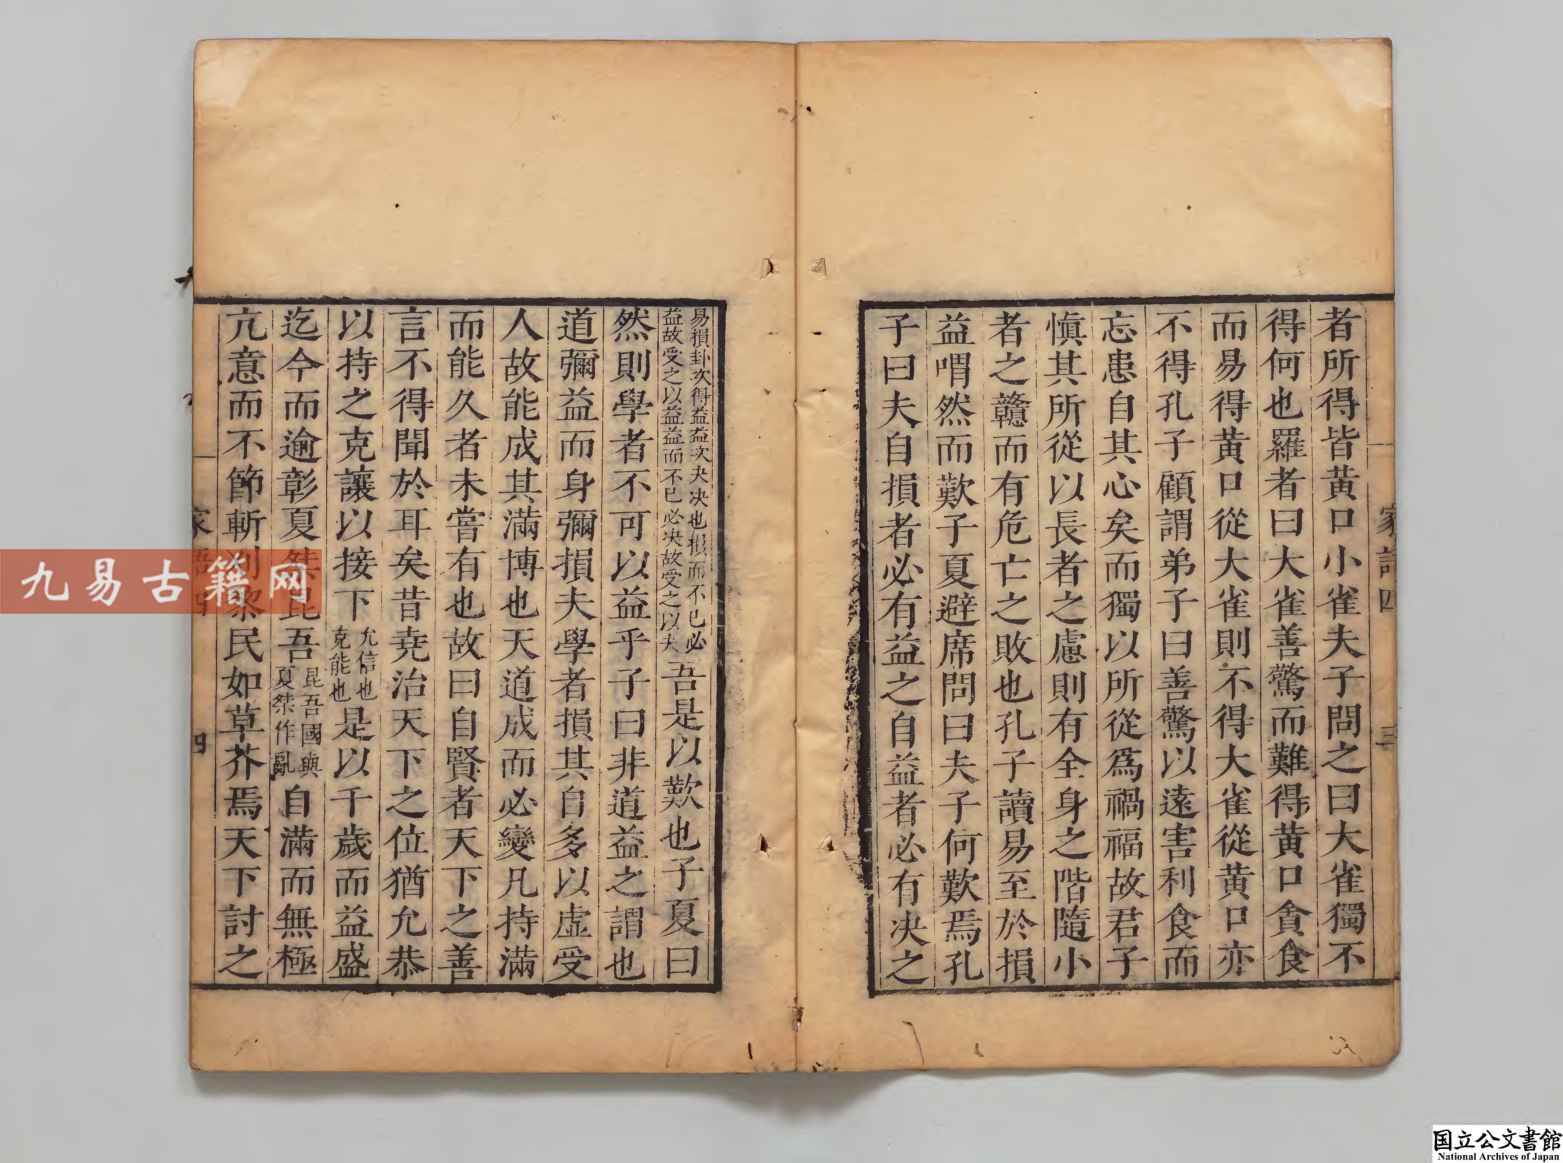 者所得皆黄口小雀夫子問之曰大雀獨不
得何也羅者曰大雀善驚而難得黄口貪食
而易得黄口從大雀則不得大雀從黄口亦
不得孔子顧謂弟子曰善驚以遠害利食而
忘患自其心矣而獨以所從爲禍福故君子
慎其所從以長者之慮則有全身之階隨小
者之戇而有危亡之敗也孔子讀易至於損
益喟然而歎子夏避席問曰夫子何歎焉孔
子曰夫自損者必有益之自益者必有决之
家語四
三
易損卦次得益益次夬夬决也損而不已必
益故受之以益益而不已必决故受之以夬
吾是以歎也子夏曰
然則學者不可以益乎子曰非道益之謂也
道彌益而身彌損夫學者損其自多以虚受
人故能成其滿博也天道成而必變凡持滿
而能久者未嘗有也故曰自賢者天下之善
言不得聞於耳矣昔堯治天下之位猶允恭
以持之克讓以接下
允信也
克能也
是以千歲而益盛
迄今而逾彰夏桀昆吾
昆吾國與
夏桀作亂
自滿而無極
亢意而不節斬刈黎民如草芥焉天下討之
四
九易古籍网
国立公文書館
National Archives of Japan